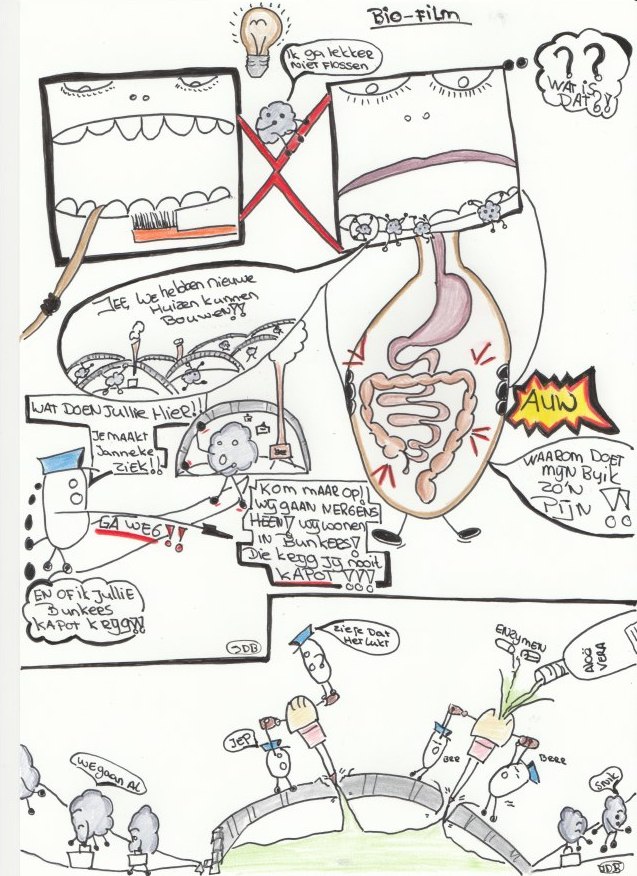 BIO-FILM
Ik ga lekker
NIET FLOSSEN
??
WAT IS
DAT
JEE, We hebben nieuwe
Huizen kunnen
Bouwen!!
WAT DOEN JULLIE HIER?!!
JE MAAKT
Janneke
ZIEK!!
GA WEG!!
KOM MAAR OP!!
WIJ GAAN NERGENS
HEEN! WIJ WONEN
IN BUNKERS!
Die krijg jij nooit
KAPOT!!!
EN OF ik JULLIE
Bunkers
KAPOT krijg!!
AUW
WAAROM DOET
mijn Buik
ZO'N
PIJN !!
JDB
Zie je Dat
Het Lukt
ENZYMEN
ALOË
VERA
JEP
BRR
BRRR
WE gaan AL
SNIK
JDB